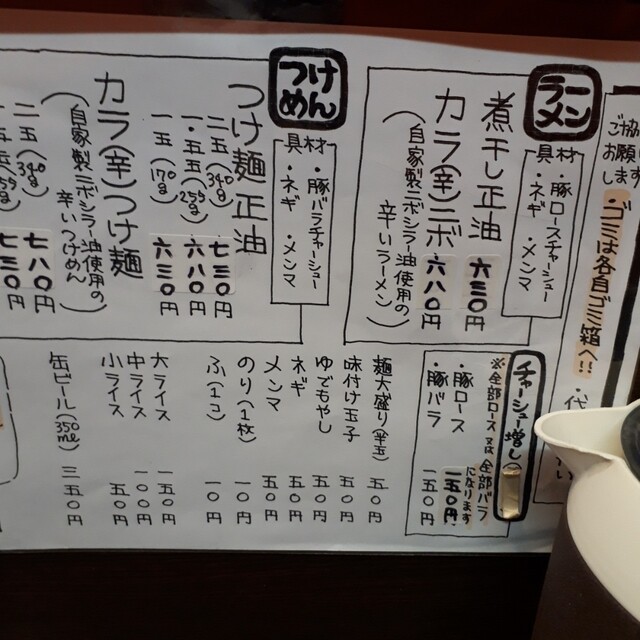 ご協
お願い
します
・ゴミは各自ゴミ箱へ!!
・代
ラー
メン
具材
・豚ロースチャーシュー
・ネギ ・メンマ
煮干し正油 六三〇円
カラ(辛)ニボ 六八〇円
(自家製ニボシラー油使用の
辛いラーメン)
つけ
めん
具材
・豚バラチャーシュー
・ネギ ・メンマ
つけ麺正油
二玉(340g) 七三〇円
一.五玉(255g) 六八〇円
一玉(170g) 六三〇円
カラ(辛)つけ麺
(自家製ニボシラー油使用の
辛いつけめん)
二玉(340g) 七八〇円
七三〇円
チャーシュー増し
※全部ロース 又は 全部バラ
になります
・豚ロース 一五〇円
・豚バラ 一五〇円
麺大盛り(半玉) 五〇円
味付け玉子 五〇円
ゆでもやし 五〇円
ネギ 五〇円
メンマ 五〇円
のり(1枚) 一〇円
ふ(1コ) 一〇円
大ライス 一五〇円
中ライス 一〇〇円
小ライス 五〇円
缶ビール(350ml) 三五〇円